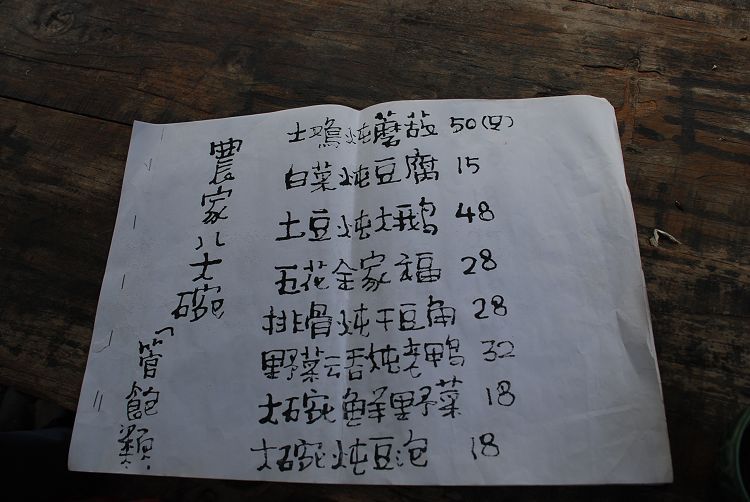 農家八大碗
「管飽類
土鸡炖蘑菇 50
白菜炖豆腐 15
土豆炖大鹅 48
五花全家福 28
排骨炖干豆角 28
野菜云吞炖老鴨 32
大碗鮮野菜 18
大碗炖豆泡 18